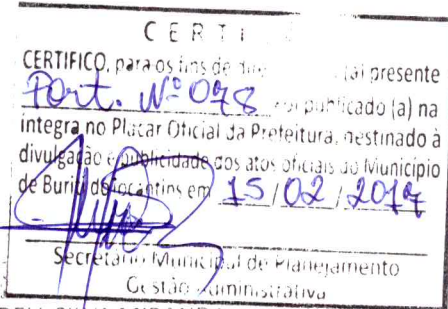 C E R T I
CERTIFICO, para os fins de (a) presente
Port. Nº 078 foi publicado (a) na
integra no Placar Oficial da Prefeitura, destinado à
divulgação e publicidade dos atos oficiais do Município
de Buriti do Tocantins em 15/02/2017
Secretário Municipal de Planejamento
Gestão Administrativa